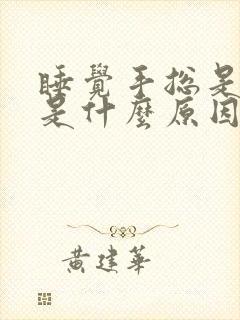 睡覺手總是
是什麼原因
黃建華